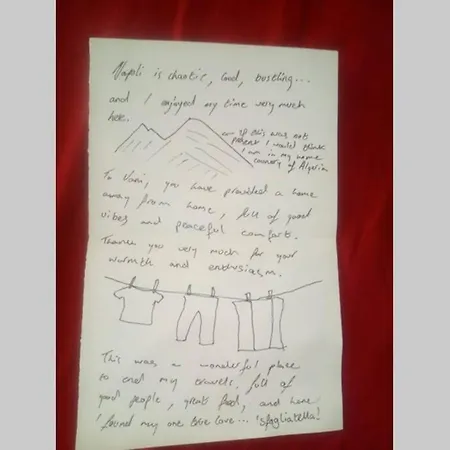 Napoli is chaotic, loud, bustling...
and I enjoyed my time very much
here.
if this was not
present I would think
I am in my home
country of Algeria
To Vani, you have provided a home
away from home, full of good
vibes and peaceful comfort.
Thank you very much for your
warmth and enthusiasm.
This was a wonderful place
to end my travels. full of
good people, great food, and here
I found my one true love... 'sfogliatella!'